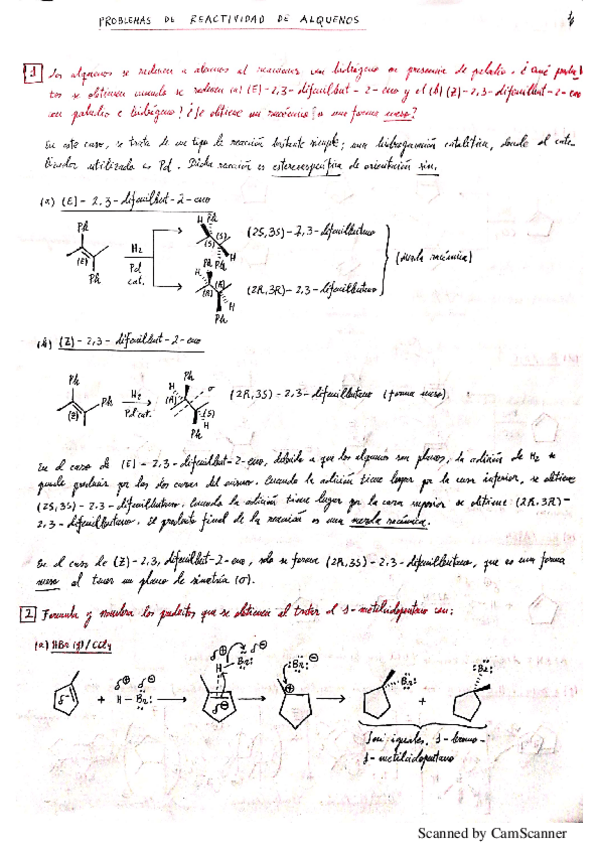 PROBLEMAS DE REACTIVIDAD DE ALQUENOS
1 Los alquenos se reducen a alcanos al reaccionar con hidrógeno en presencia de paladio. ¿Qué produc
tos se obtienen cuando se reducen (a) (E)-2,3-difenilbut-2-eno y el (b) (Z)-2,3-difenilbut-2-eno
con paladio e hidrógeno? ¿Se obtiene un racémico o una forma meso?
En este caso, se trata de un tipo de reacción bastante simple; una hidrogenación catalítica, donde el cata-
lizador utilizado es Pd. Dicha reacción es estereoespecífica de orientación sin.
(a) (E)-2,3-difenilbut-2-eno
Ph
(E)
Ph
H2
Pd
cat.
H Ph
(S)
(S)
H
Ph
(2S,3S)-2,3-difenilbutano
Ph
H
(R)
(R)
H
Ph
(2R,3R)-2,3-difenilbutano
(mezcla racémica)
(b) (Z)-2,3-difenilbut-2-eno
Ph
Ph
(Z)
H2
Pd cat.
H
Ph
σ
(R)
(S)
H
Ph
(2R,3S)-2,3-difenilbutano (forma meso)
En el caso de (E)-2,3-difenilbut-2-eno, debido a que los alquenos son planos, la adición de H2 se
puede producir por las dos caras del mismo. Cuando la adición tiene lugar por la cara inferior, se obtiene
(2S,3S)-2,3-difenilbutano. Cuando la adición tiene lugar por la cara superior se obtiene (2R,3R)-
2,3-difenilbutano. El producto final de la reacción es una mezcla racémica.
En el caso de (Z)-2,3, difenilbut-2-eno, solo se forma (2R,3S)-2,3-difenilbutano, que es una forma
meso al tener un plano de simetría (σ).
2 Formula y nombra los productos que se obtienen al tratar el 1-metilciclopentano con:
(a) HBr (g)/CCl4
δ-
+
δ⊕ δ⊖
H-Br:
δ⊕
H
Br:
δ⊖
:Br:⊖
⊕
Br:
+
:Br:
Son iguales. 1-bromo-
1-metilciclopentano
Scanned by CamScanner